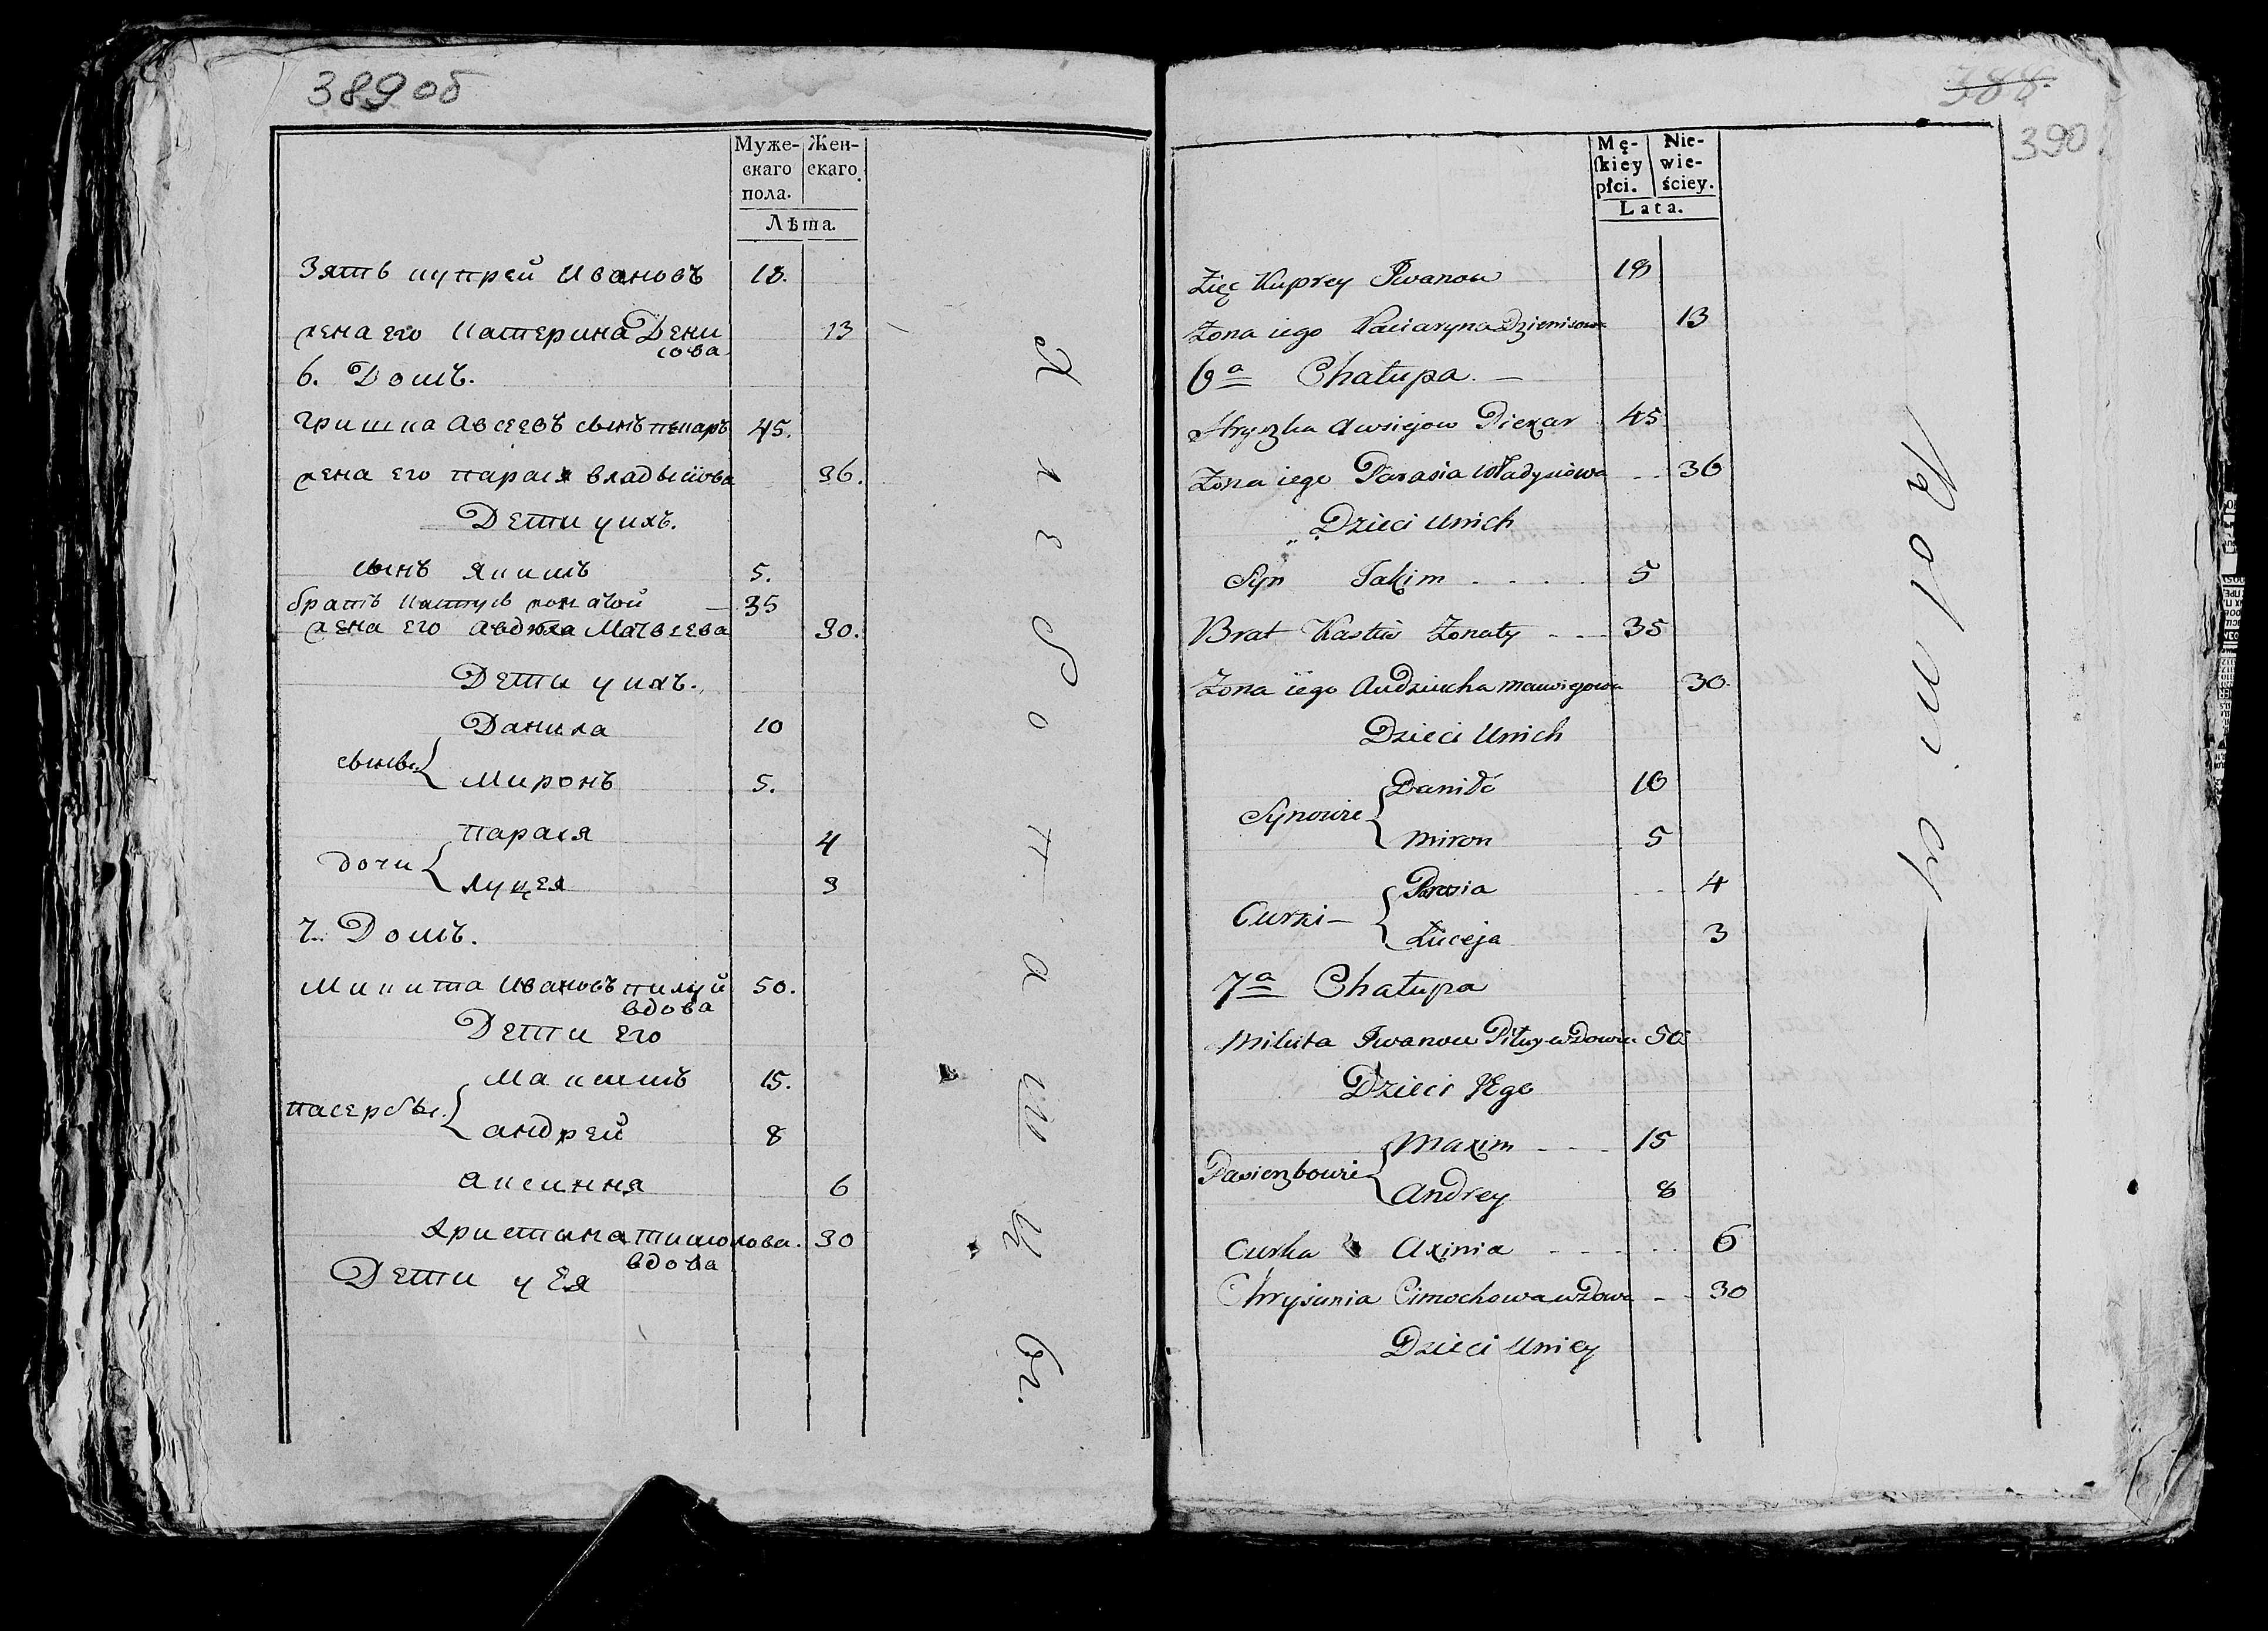 389об
Муже-
скаго
пола.
Жен-
скаго.
Лѣта.
Зять Купрей Ивановъ 18.
жена его Катерина Дени
сова 13
6. Домъ.
Гришка Авсеевъ сынъ пекаръ 45.
жена его Парася Владысіова 36.
Дети у ихъ.
сынъ Якимъ 5.
братъ Кастусь жонатой — 35
жена его Авдюха Матвеева 30.
Дети у ихъ.
сыны { Данила 10
Миронъ 5.
дочи { Парася 4
Луцея 3
7. Домъ.
Микита Ивановъ пилуй 50.
вдова
Дети его
пасербы { Максимъ 15.
Андрей 8
Аксиння 6
Христина Тимохова. 30
вдова
Дети у Ея
Хлебопашцы.
388.
390
Mę-
skiey
płci.
Nie-
wie-
ściey.
Lata.
Zięć Kuprey Iwanow 18
Żona iego Kaciaryna Dzienisowa 13
6a Chałupa. —
Hryszka Awsiejow Piekar 45
Żona iego Parasia Władysiowa 36
Dzieci Unich
Syn Jakim 5
Brat Kastuś Żonaty 35
Żona iego Audziucha Mawiejowa 30
Dzieci Unich
Synowie { Daniło 10
Miron 5
Curki — { Parasia 4
Łuceja 3
7a Chałupa
Mikita Iwanow Piłuy wdowiec 50
Dzieci JEgo
Pasierzbowie { Maxim 15
Andrey 8
Curka Axinia 6
Chrysunia Cimochowa wdowa 30
Dzieci Uniey
Rolnicy —